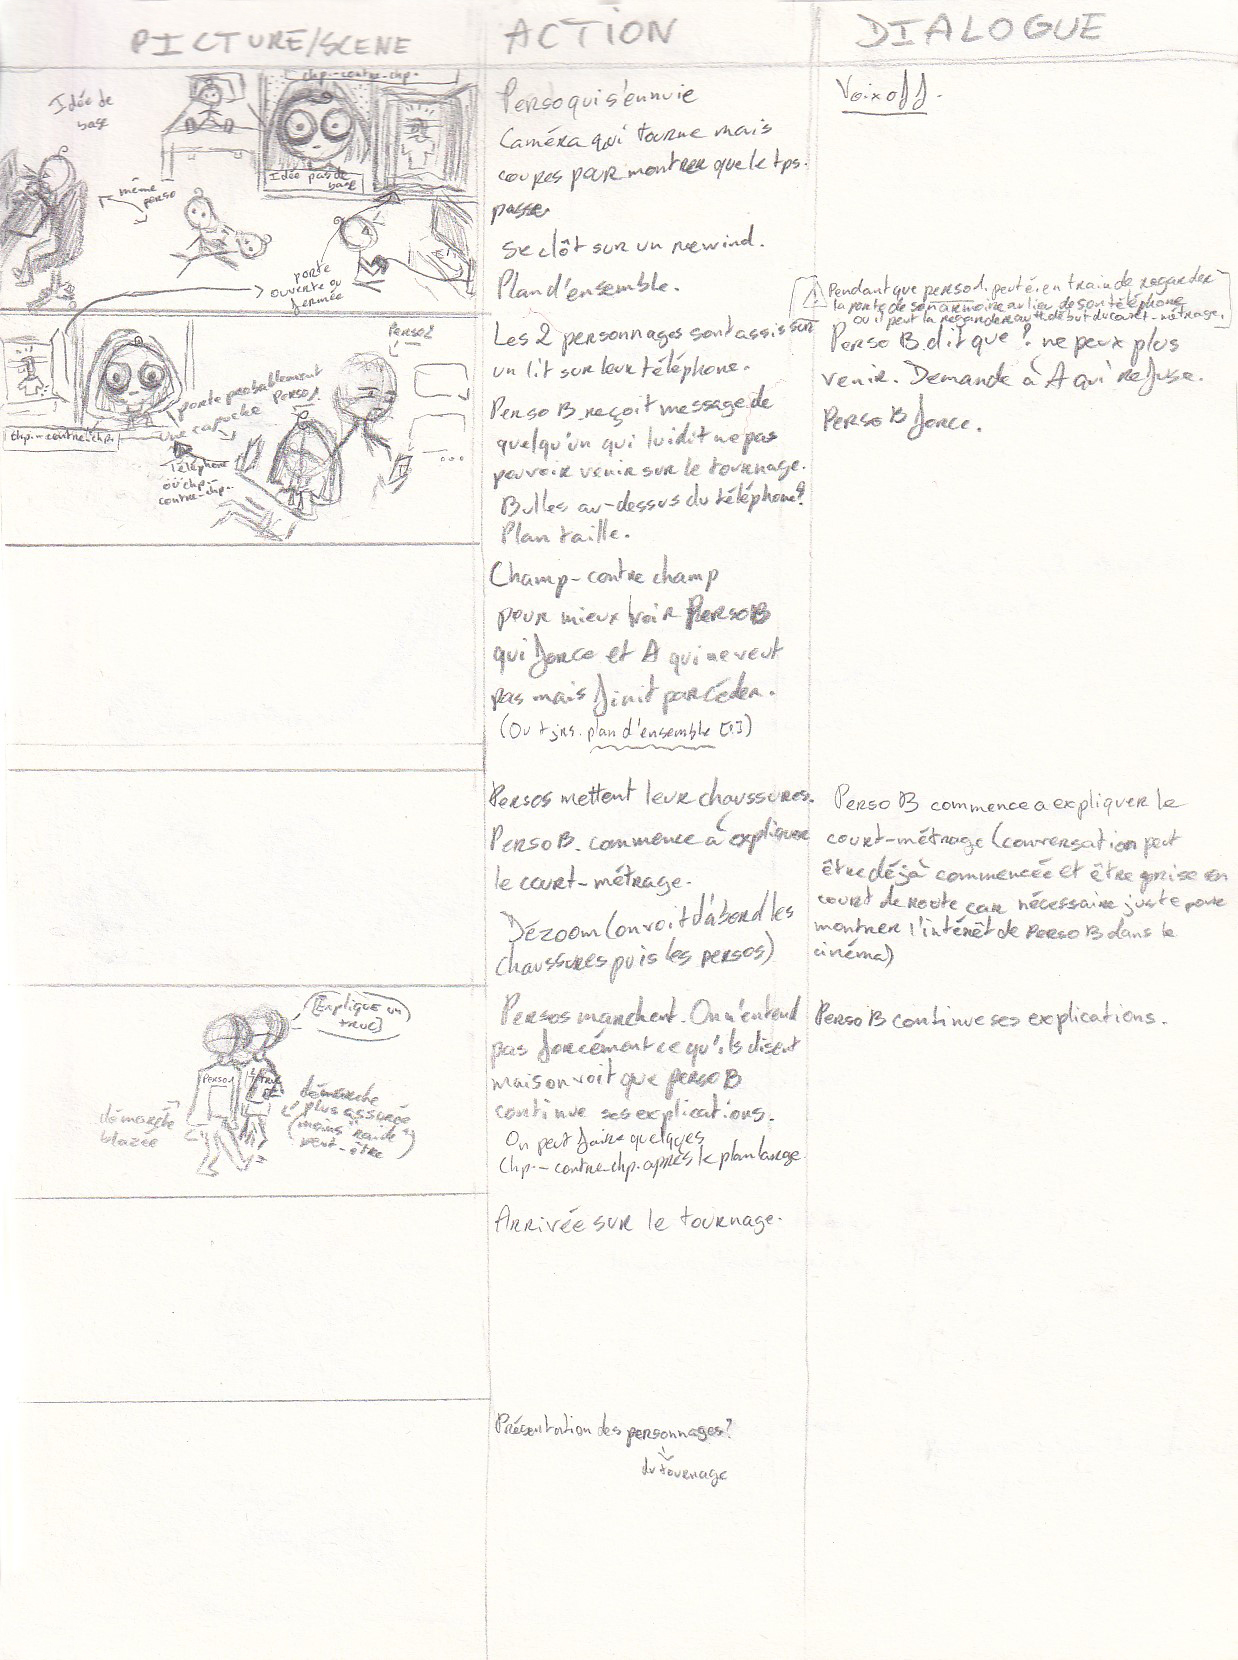 PICTURE/SCENE
ACTION
DIALOGUE
Idée de
base
même
perso
chp.-contre-chp.
Idée pas de
base
porte
ouverte ou
fermée
Perso qui s'ennuie
Caméra qui tourne mais
coupes pour montrer que le tps.
passe.
Se clôt sur un rewind.
Plan d'ensemble.
Voix off.
chp.-contre-chp.
porte probablement
une capuche
Perso1
Perso2
Téléphone
ou chp.-
contre-chp.
...
Les 2 personnages sont assis sur
un lit sur leur téléphone.
Perso B reçoit message de
quelqu'un qui lui dit ne pas
pouvoir venir sur le tournage.
Bulles au-dessus du téléphone?
Plan taille.
Pendant que perso1. peut ê. en train de regarder
la porte de son armoire au lieu de son téléphone
ou il peut la regarder au tt. début du court-métrage.
Perso B dit que ? ne peux plus
venir. Demande à A qui refuse.
Perso B force.
Champ-contre champ
pour mieux voir Perso B
qui force et A qui ne veut
pas mais finit par céder.
(Ou tjrs. plan d'ensemble [1])
Persos mettent leur chaussures.
Perso B. commence à expliquer
le court-métrage.
Dézoom (on voit d'abord les
chaussures puis les persos)
Perso B commence a expliquer le
court-métrage (conversation peut
être déjà commencée et être prise en
court de route car nécessaire juste pour
montrer l'intérêt de Perso B dans le
cinéma)
(Explique un
truc)
Perso1
démarche
blazée
démarche
plus assurée
(moins "raide"
peut-être)
Persos marchent. On n'entend
pas forcément ce qu'ils disent
mais on voit que perso B
continue ses explications.
On peut faire quelques
chp.-contre-chp. après le plan large.
Perso B continue ses explications.
Arrivée sur le tournage.
Présentation des personnages?
du tournage